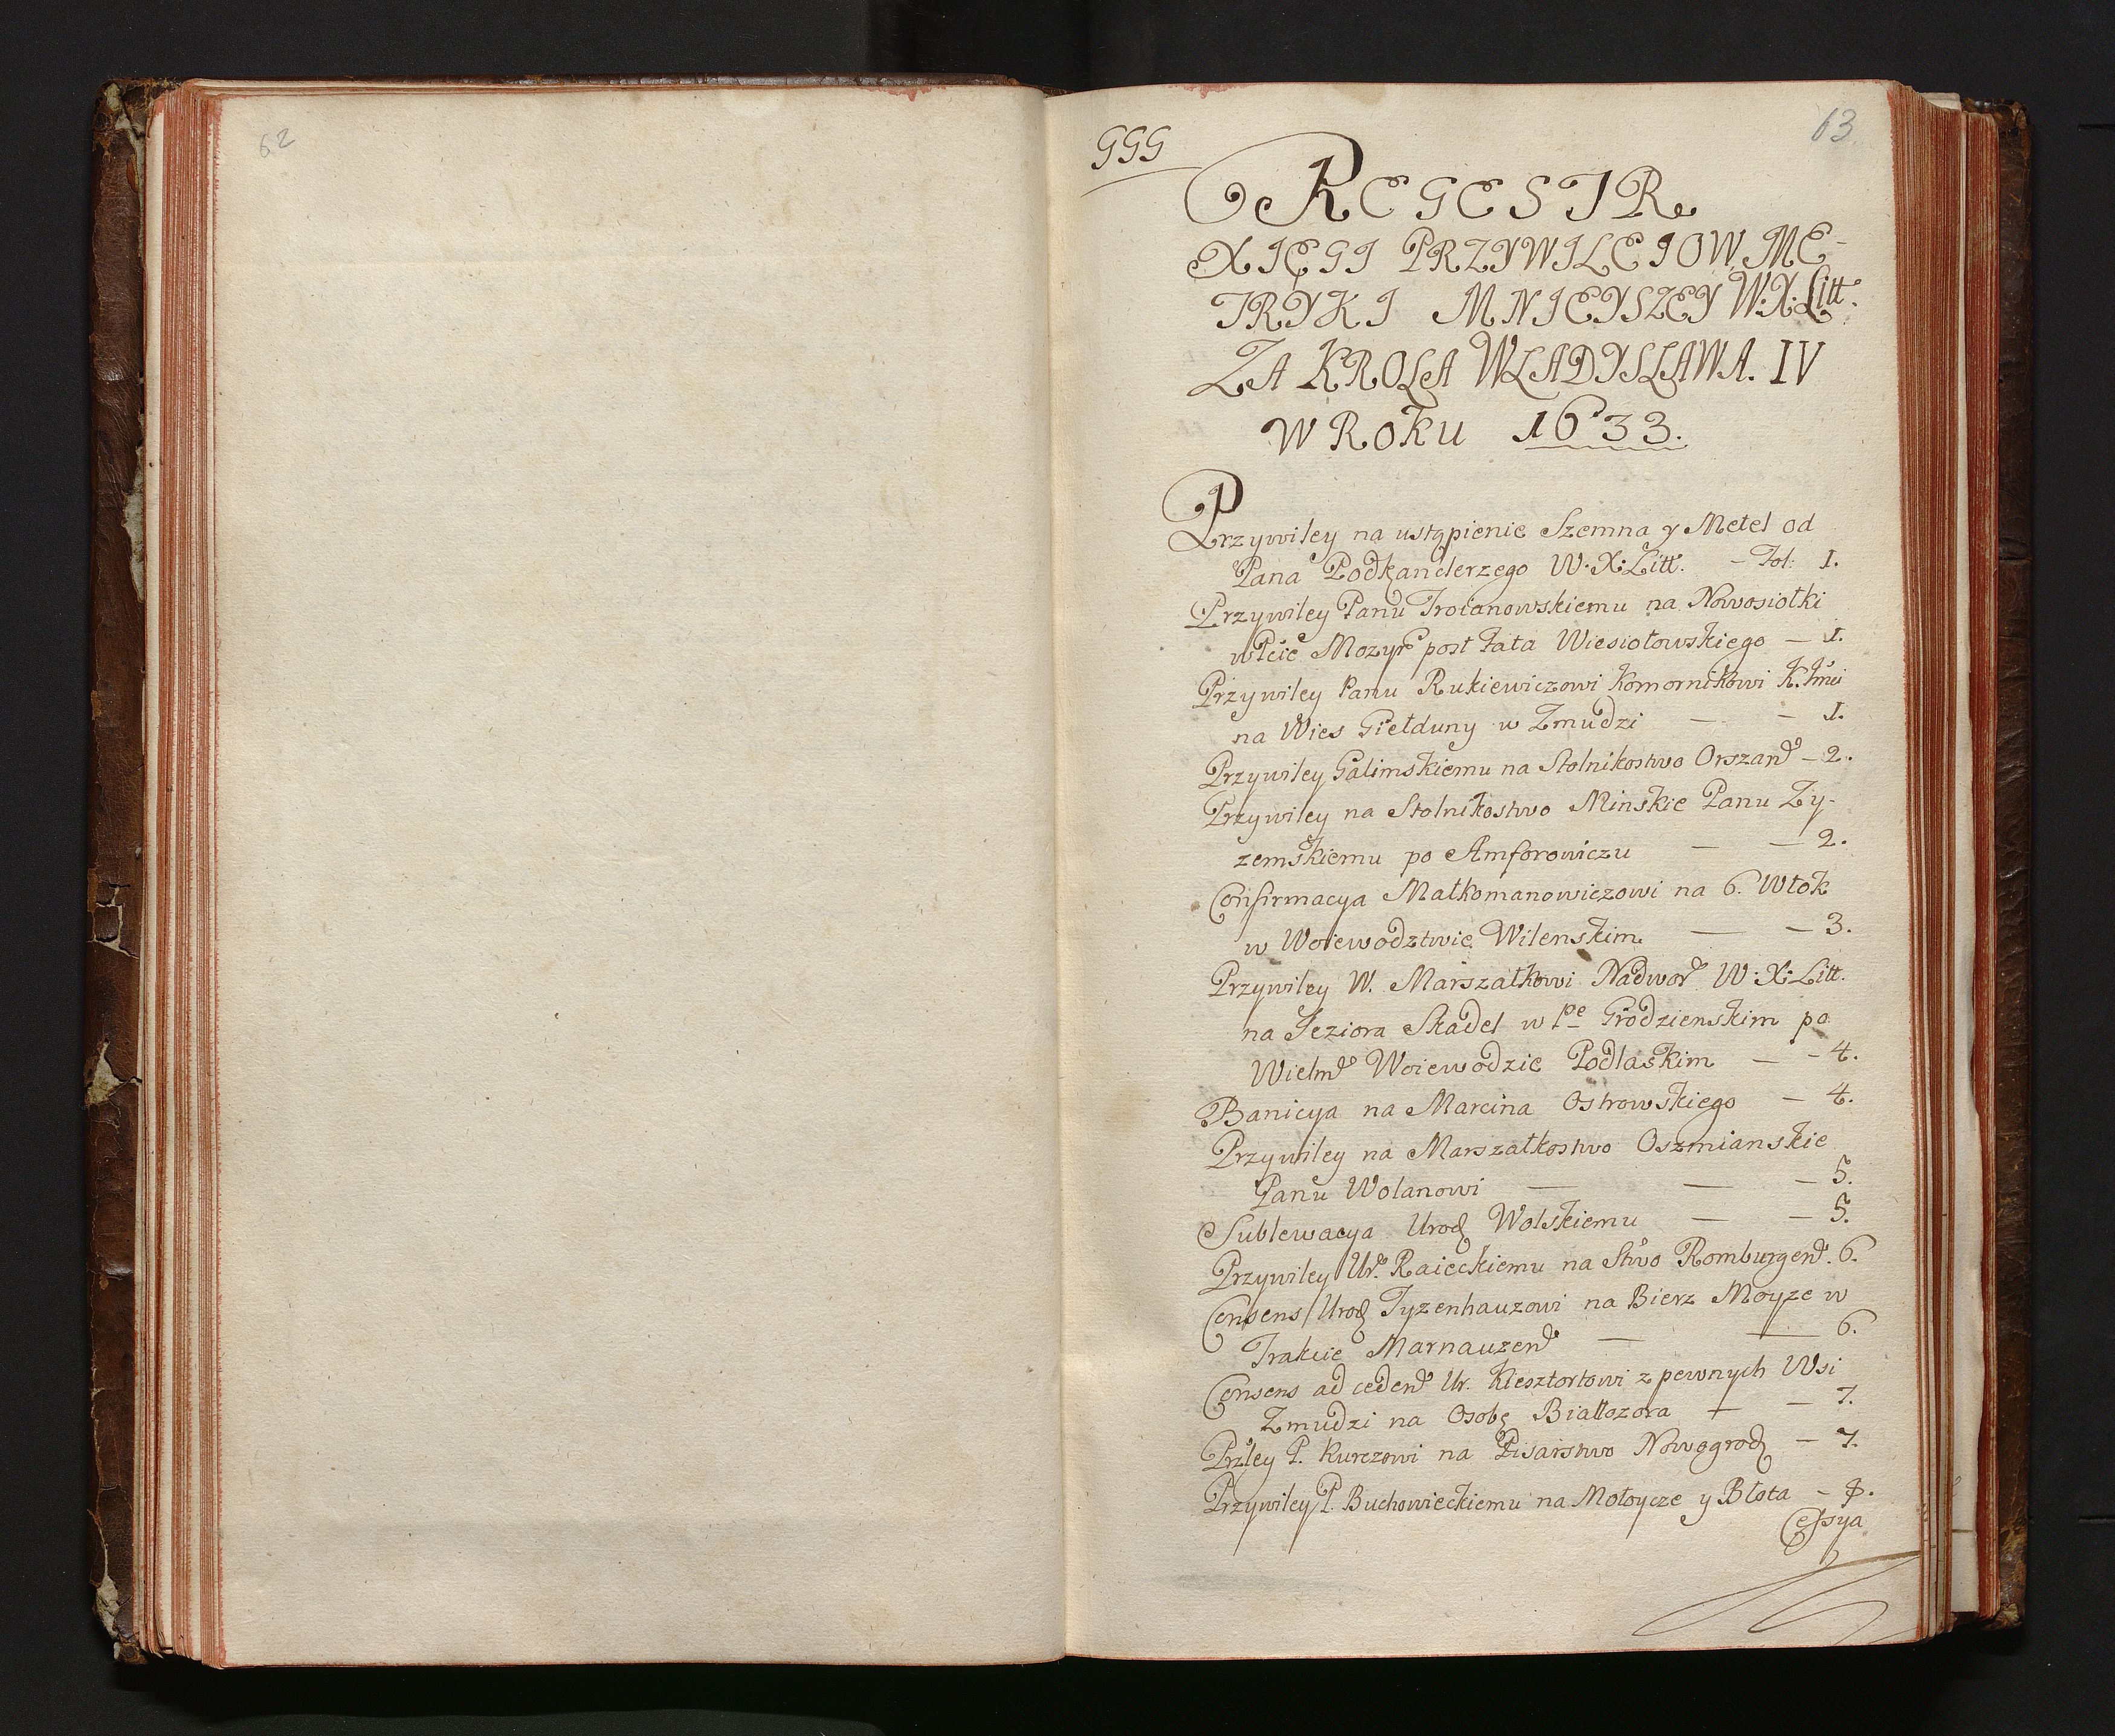 62
63
GGG
REGESTR
XIĘGI PRZYWILEIOW ME-
TRYKI MNIEYSZEY W:X:Litt:
ZA KROLA WŁADYSŁAWA. IV
W ROKU 1633.
Przywiley na ustąpienie Szemna y Metel od
Pana Podkanclerzego W:X:Litt. - Fol: 1.
Przywiley Panu Troianowskiemu na Nowosiołki
w Pcie Mozyr post fata Wiesiołowskiego — 1.
Przywiley Panu Rukiewiczowi Komornikowi
na Wies Giełduny w Zmudzi — - 1.
Przywiley Galimskiemu na Stolnikostwo Orszand - 2.
Przywiley na Stolnikostwo Minskie Panu Zy-
zemskiemu po Amforowiczu — — 2.
Confirmacya Małkomanowiczowi na 6. Włok
w Woiewodztwie Wilenskim — - 3.
Przywiley W. Marszałkowi Nadwor W:X:Litt.
na Jeziora Skadel w Pe Grodzienskim po
Wielm Woiewodzie Podlaskim — - 4.
Banicya na Marcina Ostrowskiego - 4.
Przywiley na Marszałkostwo Oszmianskie
Panu Wolanowi — — - 5.
Sublewacya Urod Wolskiemu — - 5.
Przywiley Ur. Raieckiemu na Stwo Romburgend. 6.
Consens Urod Tyzenhauzowi na Bierz Moyze w
Trakcie Marnauzend — — 6.
Consens ad cedend Ur. Kiesztortowi z pewnych Wsi
Zmudzi na Osobę Białłozora — - 7.
Przley P. Kurczowi na Pisarstwo Nowogrod - 7.
Przywiley P. Buchowieckiemu na Mołoycze y Błota - 8.
Cessya